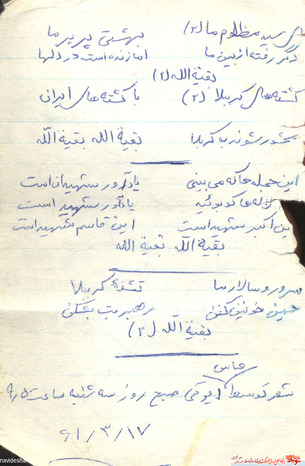 سید مظلوم ما (۲) بهشتی پیر ما
دگر رفته از بین ما اما زنده است در دلها
بقیة الله (۲)
کشته های کربلا (۲) با کشته های ایران
محشور شوند با کربلا بقیة الله بقیة الله
این حمله ها که می بینی یادآور شهیدان است
لاله ها که بوئیه یادآور شهید است
این اکبر شهید است این قاسم شهید است
بقیة الله بقیة الله
سرور و سالار ما تشنهٔ کربلا
حسین خونین کفن رهبر بت شکن
بقیة الله (۲)
عباس
شعر توسط صبح روز سه شنبه ساعت ۹/۵
۶۱/۳/۱۷
navidesha